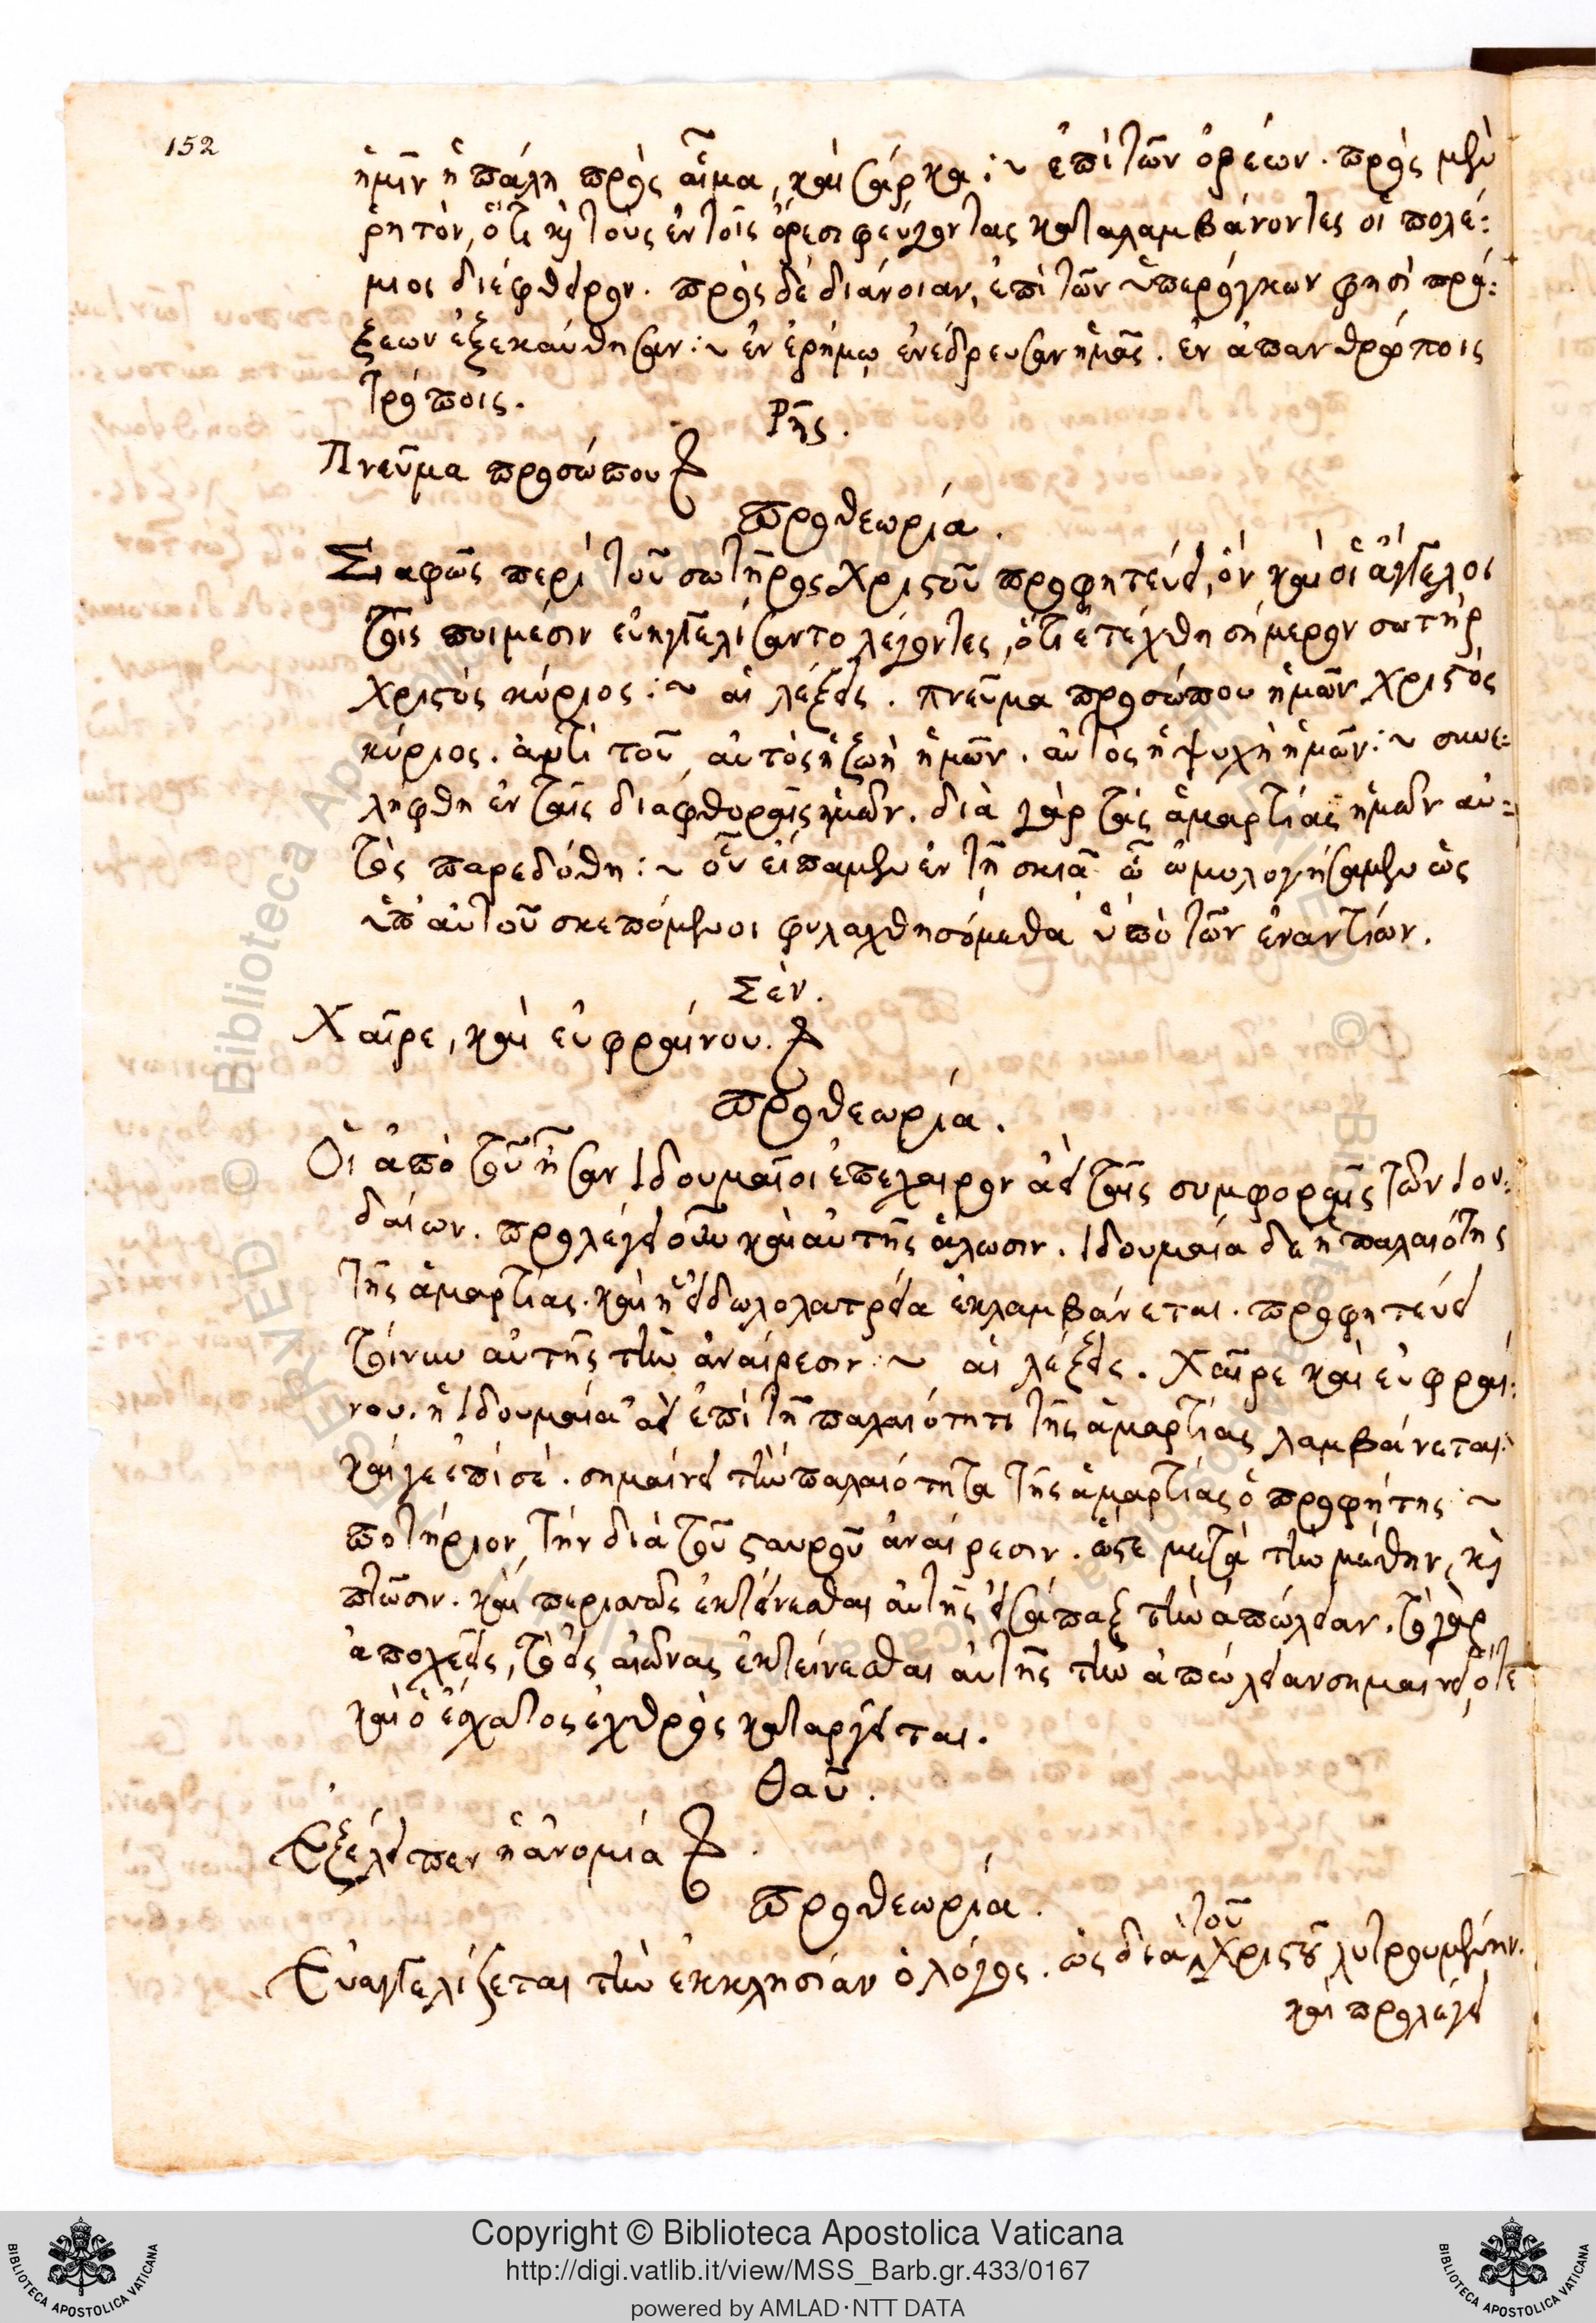 152
ἡμῖν ἡ πάλη πρὸς αἷμα, καὶ σάρκα :~ ἐπὶ τῶν ὀρέων. πρὸς μὲν
ῥητὸν, ὅτι κ̀ τοὺς ἐν τοῖς ὄρεσι φεύγοντας καταλαμβάνοντες οἱ πολέ:
μιοι διέφθειρον. πρὸς δὲ διάνοιαν, ἐπὶ τῶν ὑπερόγκων φησὶ πρά:
ξεων ἐξεκαύθησαν :~ ἐν ἐρήμῳ ἐνέδρευσαν ἡμᾶς. ἐν ἀπανθρώποις
τρόποις.
Ρῆς.
Πνεῦμα προσώπου
προθεωρία.
Σαφῶς περὶ τοῦ σωτῆρος Χριστοῦ προφητεύει, ὃν καὶ οἱ ἄγγελοι
τοῖς ποιμέσιν εὐηγγελίσαντο λέγοντες, ὅτι ἐτέχθη σήμερον σωτήρ
χριστὸς κύριος :~ αἱ λέξεις. πνεῦμα προσώπου ἡμῶν χριστὸς
κύριος. ἀντὶ τοῦ, αὐτὸς ἡ ζωὴ ἡμῶν. αὐτὸς ἡ ψυχὴ ἡμῶν :~ συνε:
λήφθη ἐν ταῖς διαφθοραῖς ἡμῶν. διὰ γὰρ τὰς ἁμαρτίας ἡμῶν αὐ:
τὸς παρεδόθη :~ οὗ εἴπαμεν ἐν τῇ σκιᾷ ᾧ ὡμολογήσαμεν ὡς
ὑπ' αὐτοῦ σκεπόμενοι φυλαχθησόμεθα ὑπὸ τῶν ἐναντίων.
Σὲν.
Χαῖρε, καὶ εὐφραίνου.
προθεωρία.
Οἱ ἀπὸ τοῦ ἠσαν Ιδουμαῖοι ἐπέχαιρον ἀεὶ ταῖς συμφοραῖς τῶν Ιου:
δαίων. προλέγει οὖν καὶ αὐτῆς ἅλωσιν. Ιδουμαία δὲ ἡ παλαιότης
τῆς ἁμαρτίας. καὶ ἡ εἰδωλολατρεία ἐκλαμβάνεται. προφητεύει
τοίνυν αὐτῆς τὴν ἀναίρεσιν :~ αἱ λέξεις. Χαῖρε καὶ εὐφραί:
νου. ἡ Ιδουμαία ἀεὶ ἐπὶ τῇ παλαιότητι τῆς ἁμαρτίας λαμβάνεται:
καίγε ἐπὶ σὲ. σημαίνει τὴν παλαιότητα τῆς ἁμαρτίας ὁ προφήτης :~
ποτήριον, τὴν διὰ τοῦ σταυροῦ ἀναίρεσιν. ὥστε μετὰ τὴν μέθην, κ̀
πτῶσιν. καὶ ἐκτείνεσθαι αὐτῆς εἰσάπαξ τὴν ἀπώλειαν. τὸ γὰρ
ἀποχεεῖς, τὸ εἰς αἰῶνας ἐκτείνεσθαι αὐτῆς τὴν ἀπώλειαν σημαίνει, ὅτε
καὶ ὁ ἔσχατος ἐχθρὸς καταργεῖται.
Θαῦ.
Ἐξέλειπεν ἡ ἀνομία
προθεωρία.
Εὐαγγελίζεται τὴν ἐκκλησίαν ὁ λόγος. ὡς διὰ τοῦ Χριστοῦ λυτρουμένην.
καὶ προλέγει
Copyright © Biblioteca Apostolica Vaticana
http://digi.vatlib.it/view/MSS_Barb.gr.433/0167
powered by AMLAD·NTT DATA
BIBLIOTECA APOSTOLICA VATICANA
BIBLIOTECA APOSTOLICA VATICANA